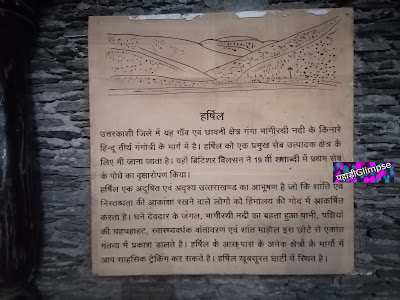 हर्षिल
उत्तरकाशी जिले में यह गाँव एवं छावनी क्षेत्र गंगा भागीरथी नदी के किनारे
हिन्दू तीर्थ गंगोत्री के मार्ग में है। हर्षिल को एक प्रमुख सेब उत्पादक क्षेत्र के
लिए भी जाना जाता है। यहाँ ब्रिटिशर विलसन ने 19 वीं शताब्दी में प्रथम सेब
के पौधे का वृक्षारोपण किया।
हर्षिल एक अदूषित एवं अदृश्य उत्तराखण्ड का आभूषण है जो कि शांति एवं
निस्तब्धता की आकांक्षा रखने वाले लोगो को हिमालय की गोद में आकर्षित
करता है। घने देवदार के जंगल, भागीरथी नदी का बहता हुआ पानी, पक्षियों
की चहचहाहट, स्वास्थ्यवर्धक वातावरण एवं शांत माहौल इस छोटे से एकांत
गंतव्य में प्रकाश डालते है। हर्षिल के आस पास के अनेक क्षेत्रों के मार्गो में
आप साहसिक ट्रेकिंग कर सकते है। हर्षिल खूबसूरत घाटी में स्थित है।
पहाड़ीGlimpse